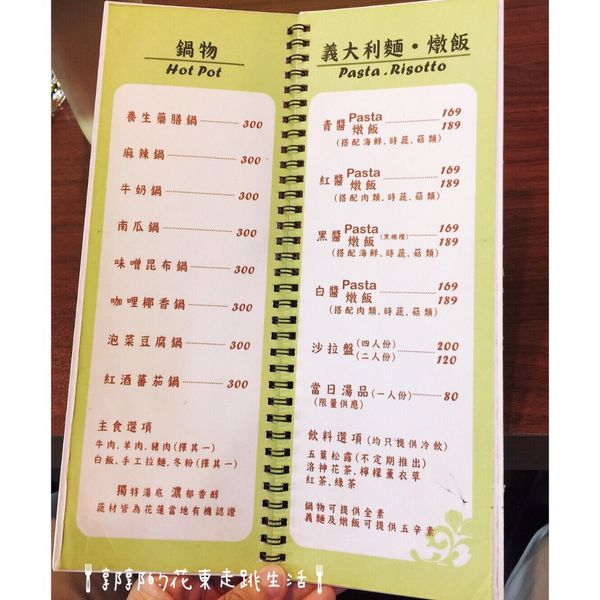 鍋物
Hot Pot
養生藥膳鍋 300
麻辣鍋 300
牛奶鍋 300
南瓜鍋 300
味噌昆布鍋 300
咖哩椰香鍋 300
泡菜豆腐鍋 300
紅酒蕃茄鍋 300
主食選項
牛肉.羊肉.豬肉(擇其一)
白飯.手工拉麵.冬粉(擇其一)
獨特湯底 濃郁香醇
蔬材皆為花蓮當地有機認證
義大利麵・燉飯
Pasta.Risotto
青醬 Pasta 169
燉飯 189
(搭配海鮮.時蔬.菇類)
紅醬 Pasta 169
燉飯 189
(搭配肉類.時蔬.菇類)
黑醬 Pasta (黑橄欖) 169
燉飯 189
(搭配海鮮.時蔬.菇類)
白醬 Pasta 169
燉飯 189
(搭配肉類.時蔬.菇類)
沙拉盤 (四人份) 200
(二人份) 120
當日湯品 (一人份) 80
(限量供應)
飲料選項 (均只提供冷飲)
五葉松露(不定期推出)
洛神花茶.檸檬薰衣草
紅茶.綠茶
鍋物可提供全素
義麵及燉飯可提供五辛素
郭郭的花東走跳生活